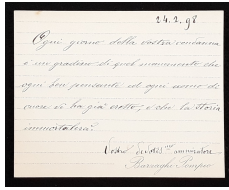 24.2.98
Ogni giorno della vostra condanna
è un gradino di quel monumento che
ogni ben pensante ed ogni uomo di
cuore vi ha già eretto, e che la storia
immortalerà.
Vostro devotiss.mo ammiratore
Barraghi Pompeo